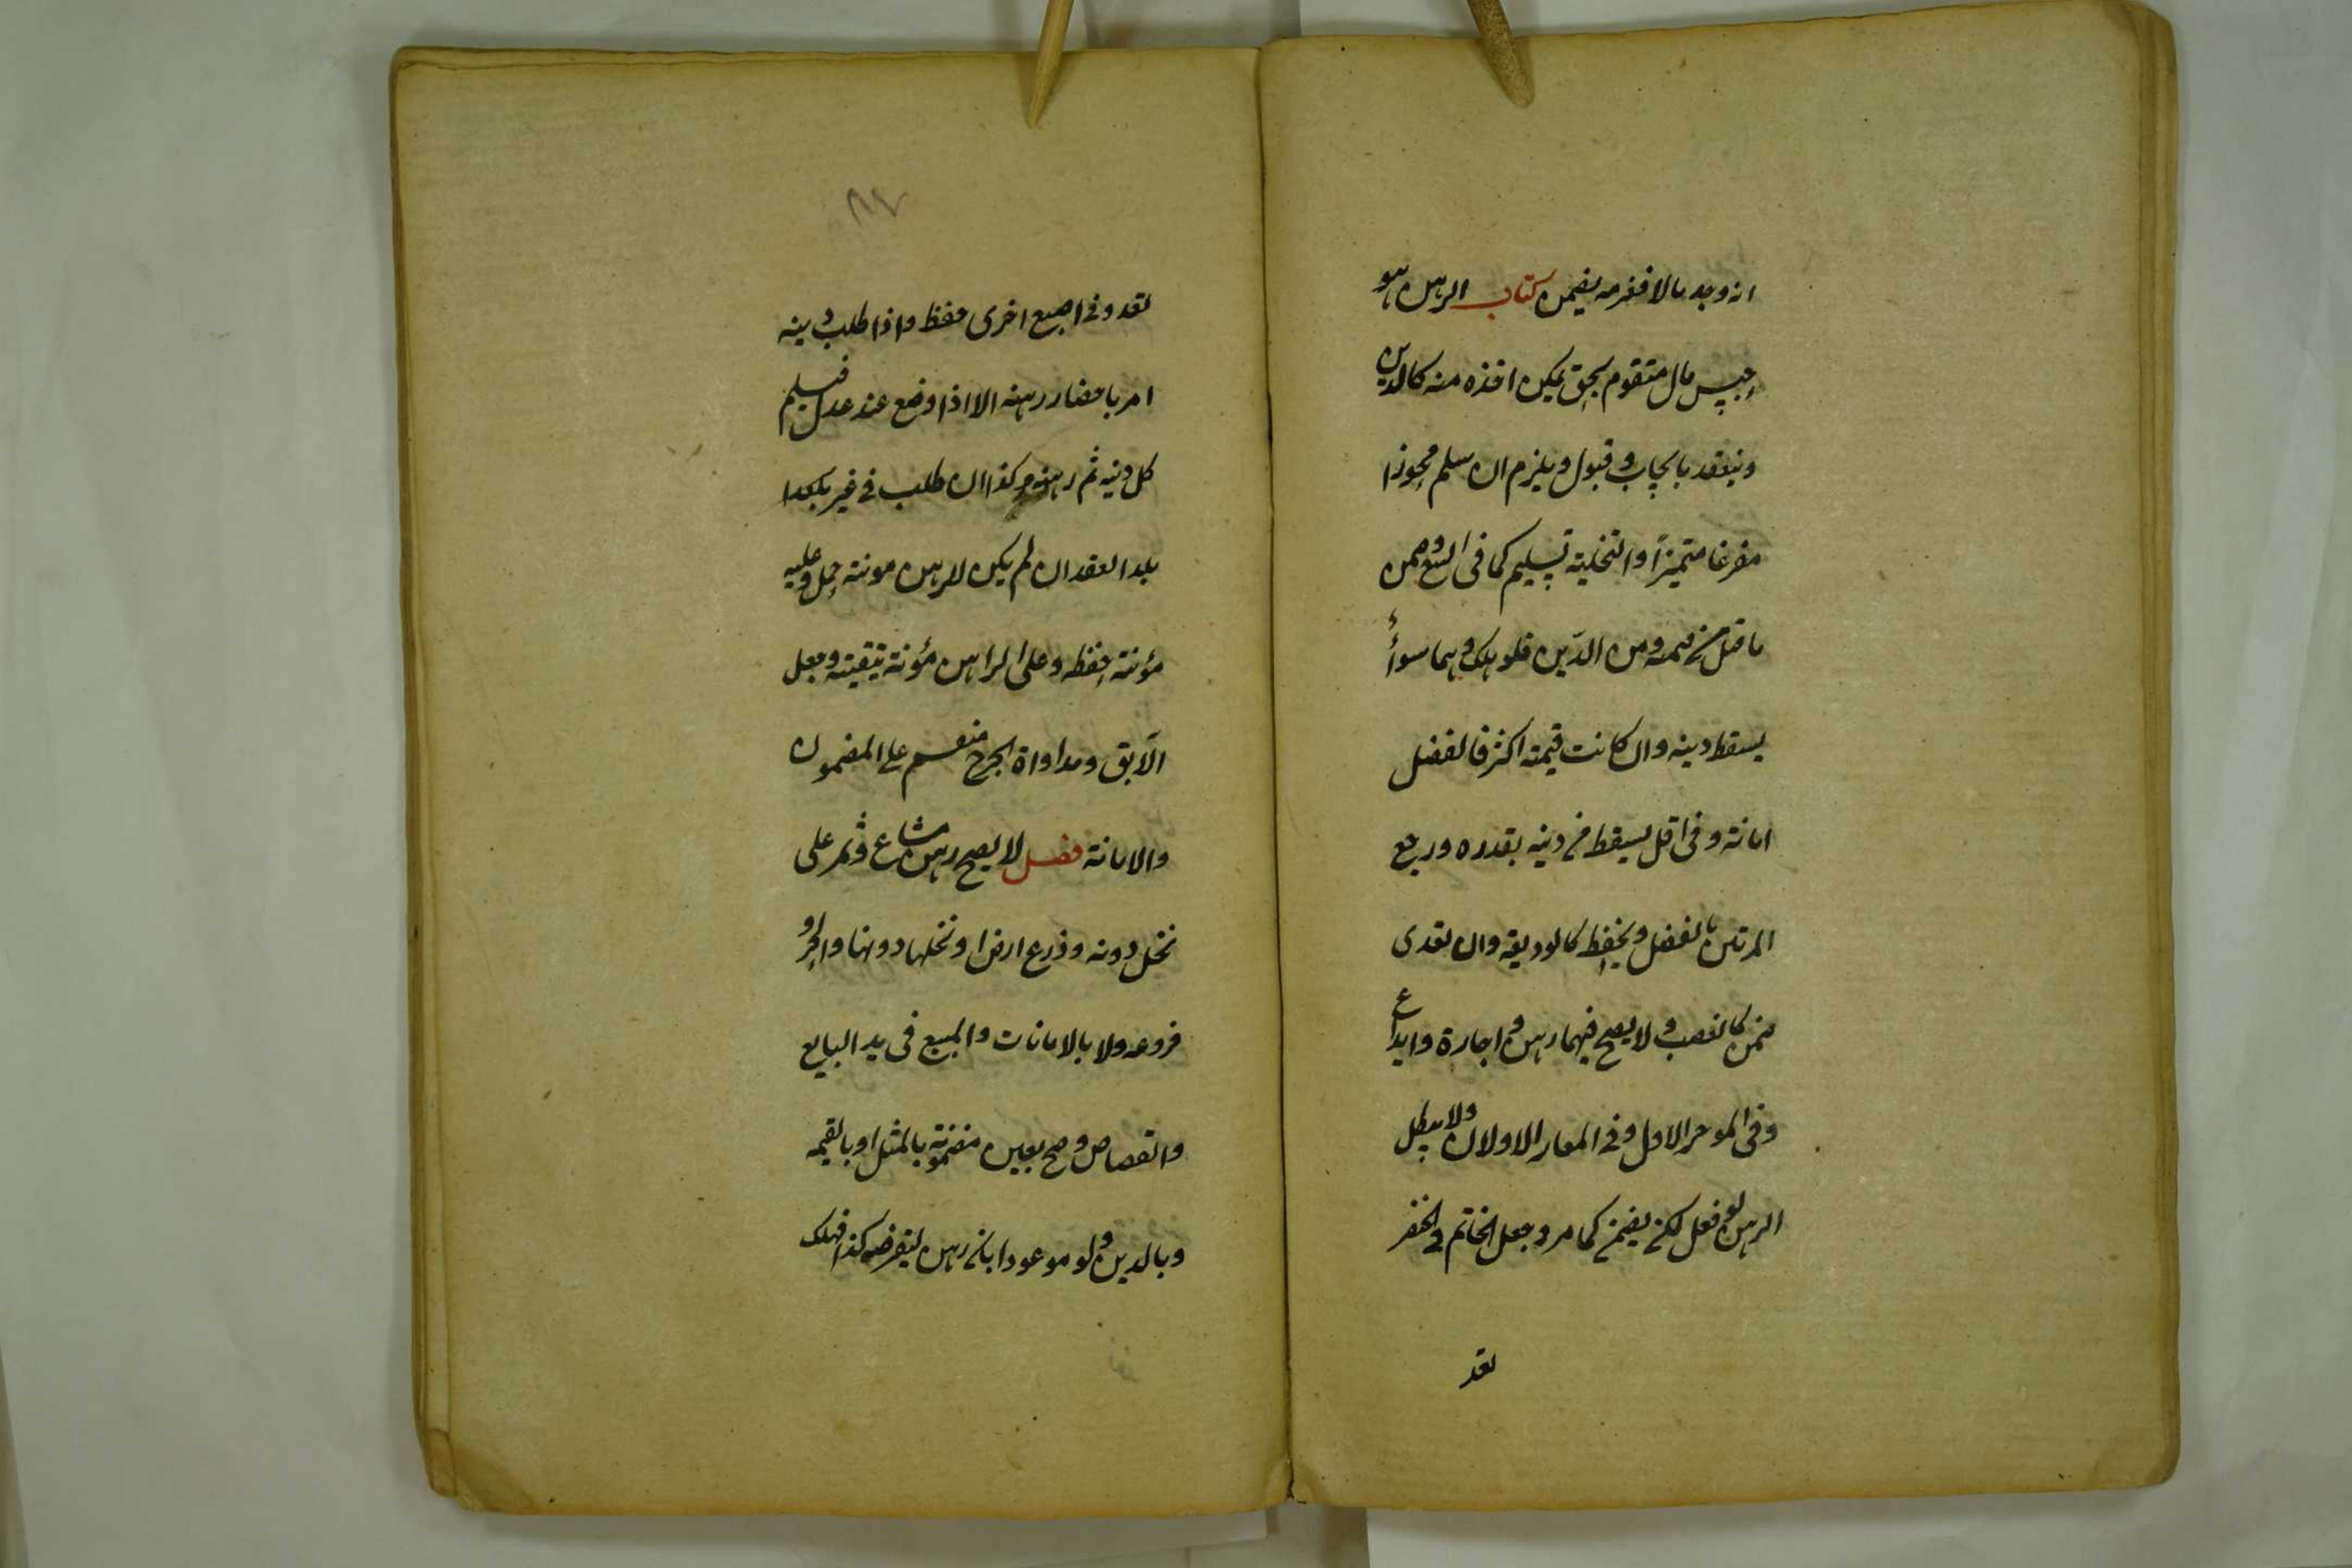 انه وجد مالا فغرمه يضمن كتاب الرهن هو
حبس مال متقوم بحق يمكن اخذه منه كالدين
وينعقد بايجاب و قبول ويلزم ان سلم محوزا
مفرغا متميزاً والتخلية تسليم كما فى البيع وضمن
ما قل من قيمته ومن الدّين فلو هلك وهما سواءً
يسقط دينه وان كانت قيمته اكثر فالفضل
امانة وفى اقل يسقط من دينه بقدره ورجع
المرتهن بالفضل ويحفظ كالوديعة وان تعدى
ضمن كالغصب ولا يصح فيهما رهن و اجارة وايداع
وفى الموجر الاول وفى المعار الاولان ولا يبطل
الرهن لو فعل لكن يضمن كما مر وجعل الخاتم فى الخنصر
تعد
تعد وفى اصبع اخرى حفظ واذا طلب دينه
امر باحضار رهنه الا اذا وضع عند عدل فيسلم
كل دينه ثم رهنه وكذا ان طلب فى غير بلد
بلد العقد ان لم يكن للرهن مونة حمل وعليه
مؤنة حفظه وعلى الراهن مؤنة تبقيته وجعل
الآبق ومداواة الجرح منقسم على المضمون
والامانة فصل لا يصح رهن مشاع وثمر على
نخل دونه وزرع ارض او نخلها دونها والحر و
فروعه ولا بالامانات والمبيع فى يد البايع
والقصاص وصح بعين مضمونة بالمثل او بالقيمه
وبالدين ولو موعودا بان رهن ليقرضه كذا فهلك